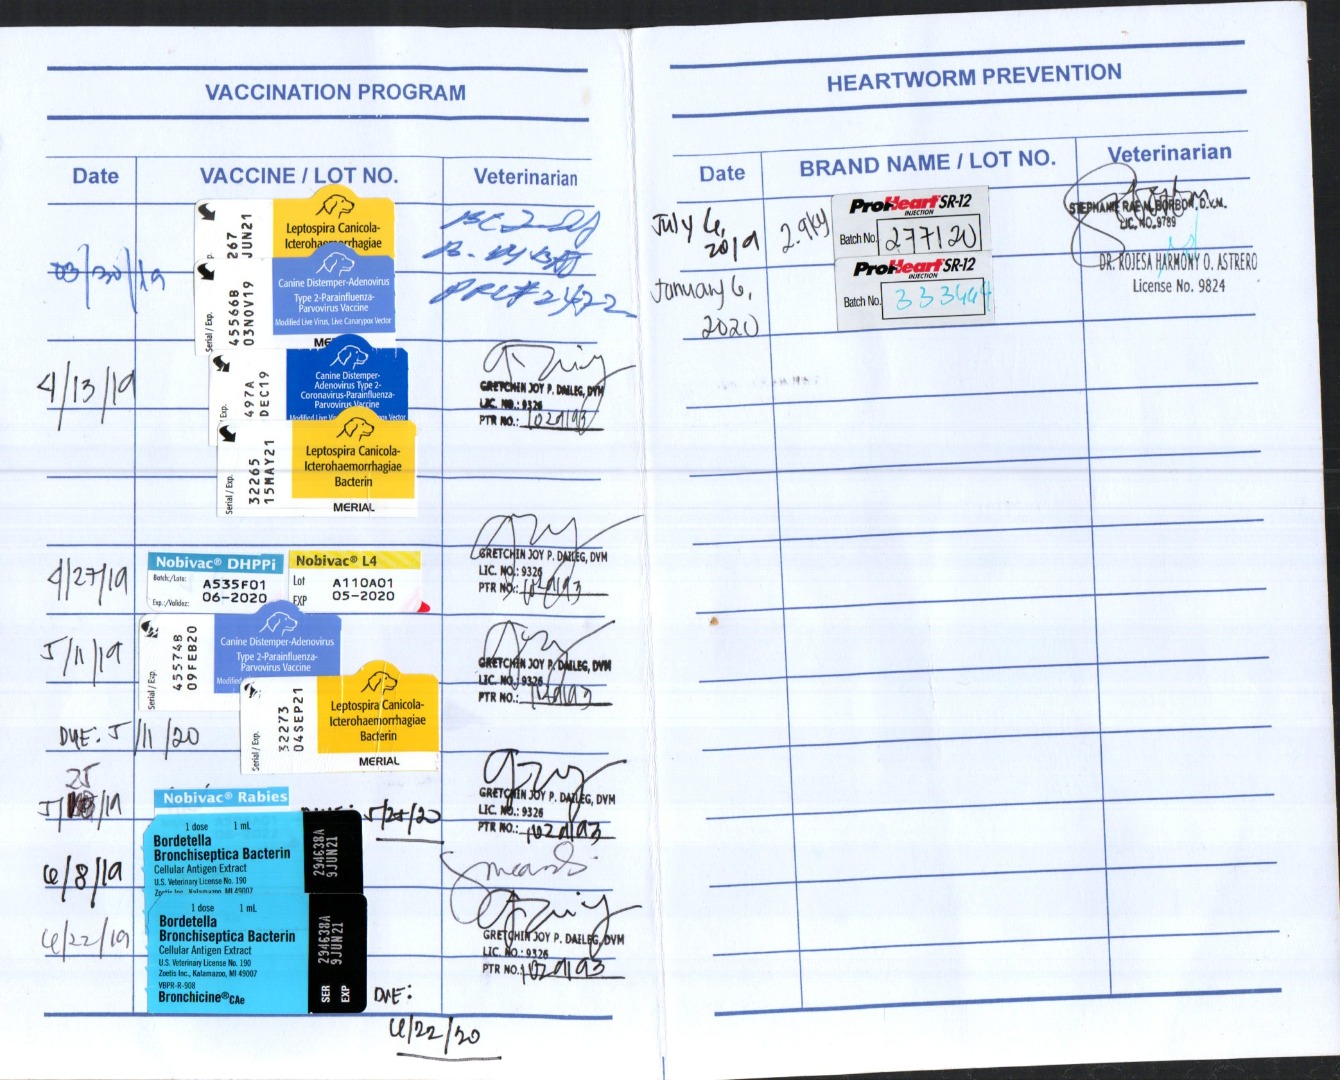 VACCINATION PROGRAM
Date
VACCINE / LOT NO.
Veterinarian
03/30/19
267
JUN21
Leptospira Canicola-
Icterohaemorrhagiae
Serial / Exp.
45568B
03NOV19
Canine Distemper-Adenovirus
Type 2-Parainfluenza-
Parvovirus Vaccine
Modified Live Virus, Live Canarypox Vector
4/13/19
497A
DEC19
Canine Distemper-
Adenovirus Type 2-
Coronavirus-Parainfluenza-
Parvovirus Vaccine
GRETCHIN JOY P. DAILEG, DVM
LIC. NO.: 9326
PTR NO.: 1029193
Serial / Exp.
32265
15MAY21
Leptospira Canicola-
Icterohaemorrhagiae
Bacterin
MERIAL
4/27/19
Nobivac® DHPPi
Batch:/Lote:
A535F01
06-2020
Exp.:/Validez:
Nobivac® L4
Lot
A110A01
EXP
05-2020
GRETCHIN JOY P. DAILEG, DVM
LIC. NO.: 9326
PTR NO.: 1029193
5/11/19
Serial / Exp.
45574B
09FEB20
Canine Distemper-Adenovirus
Type 2-Parainfluenza-
Parvovirus Vaccine
GRETCHIN JOY P. DAILEG, DVM
LIC. NO.: 9326
PTR NO.: 1029193
DUE: 5/11/20
Serial / Exp.
32273
04SEP21
Leptospira Canicola-
Icterohaemorrhagiae
Bacterin
MERIAL
25
5/ /19
Nobivac® Rabies
DUE: 5/25/20
GRETCHIN JOY P. DAILEG, DVM
LIC. NO.: 9326
PTR NO.: 1029193
6/8/19
1 dose 1 mL
Bordetella
Bronchiseptica Bacterin
Cellular Antigen Extract
U.S. Veterinary License No. 190
Zoetis Inc., Kalamazoo, MI 49007
294638A
9JUN21
6/22/19
1 dose 1 mL
Bordetella
Bronchiseptica Bacterin
Cellular Antigen Extract
U.S. Veterinary License No. 190
Zoetis Inc., Kalamazoo, MI 49007
VBPR-R-908
Bronchicine®CAe
SER 294638A
EXP 9JUN21
GRETCHIN JOY P. DAILEG, DVM
LIC. NO.: 9326
PTR NO.: 1029193
DUE:
6/22/20
HEARTWORM PREVENTION
Date
BRAND NAME / LOT NO.
Veterinarian
July 6,
2019
2.9kg
ProHeart SR-12
INJECTION
Batch No. 277120
STEPHANIE RAE M. BORBON, D.V.M.
LIC. NO. 9789
January 6,
2020
ProHeart SR-12
INJECTION
Batch No. 333444
DR. ROJESA HARMONY O. ASTRERO
License No. 9824